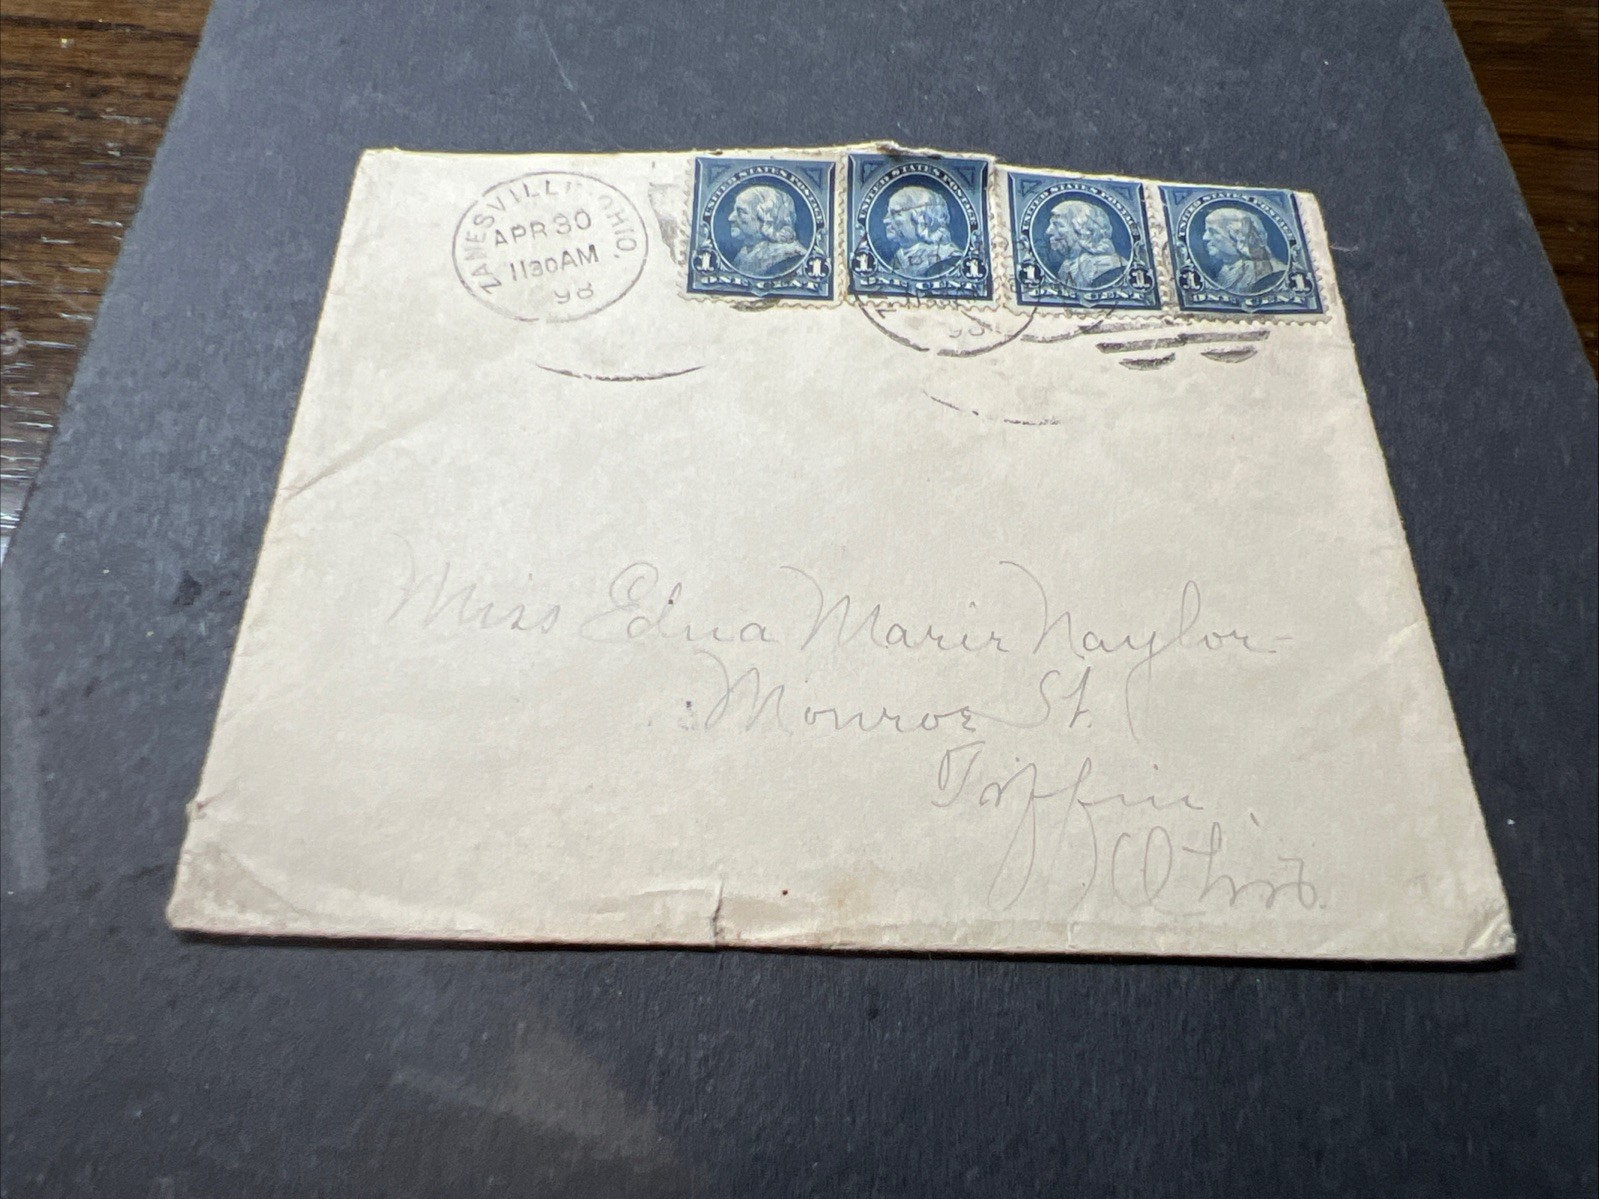 ZANESVILL OHIO.
APR 30
1130AM
98
UNITED STATES POSTAGE
1 1
ONE CENT
UNITED STATES POSTAGE
1 1
ONE CENT
UNITED STATES POSTAGE
1 1
ONE CENT
UNITED STATES POSTAGE
1 1
ONE CENT
98
Miss Edna Marie Naylor
Monroe St.
Tiffin
Ohio.